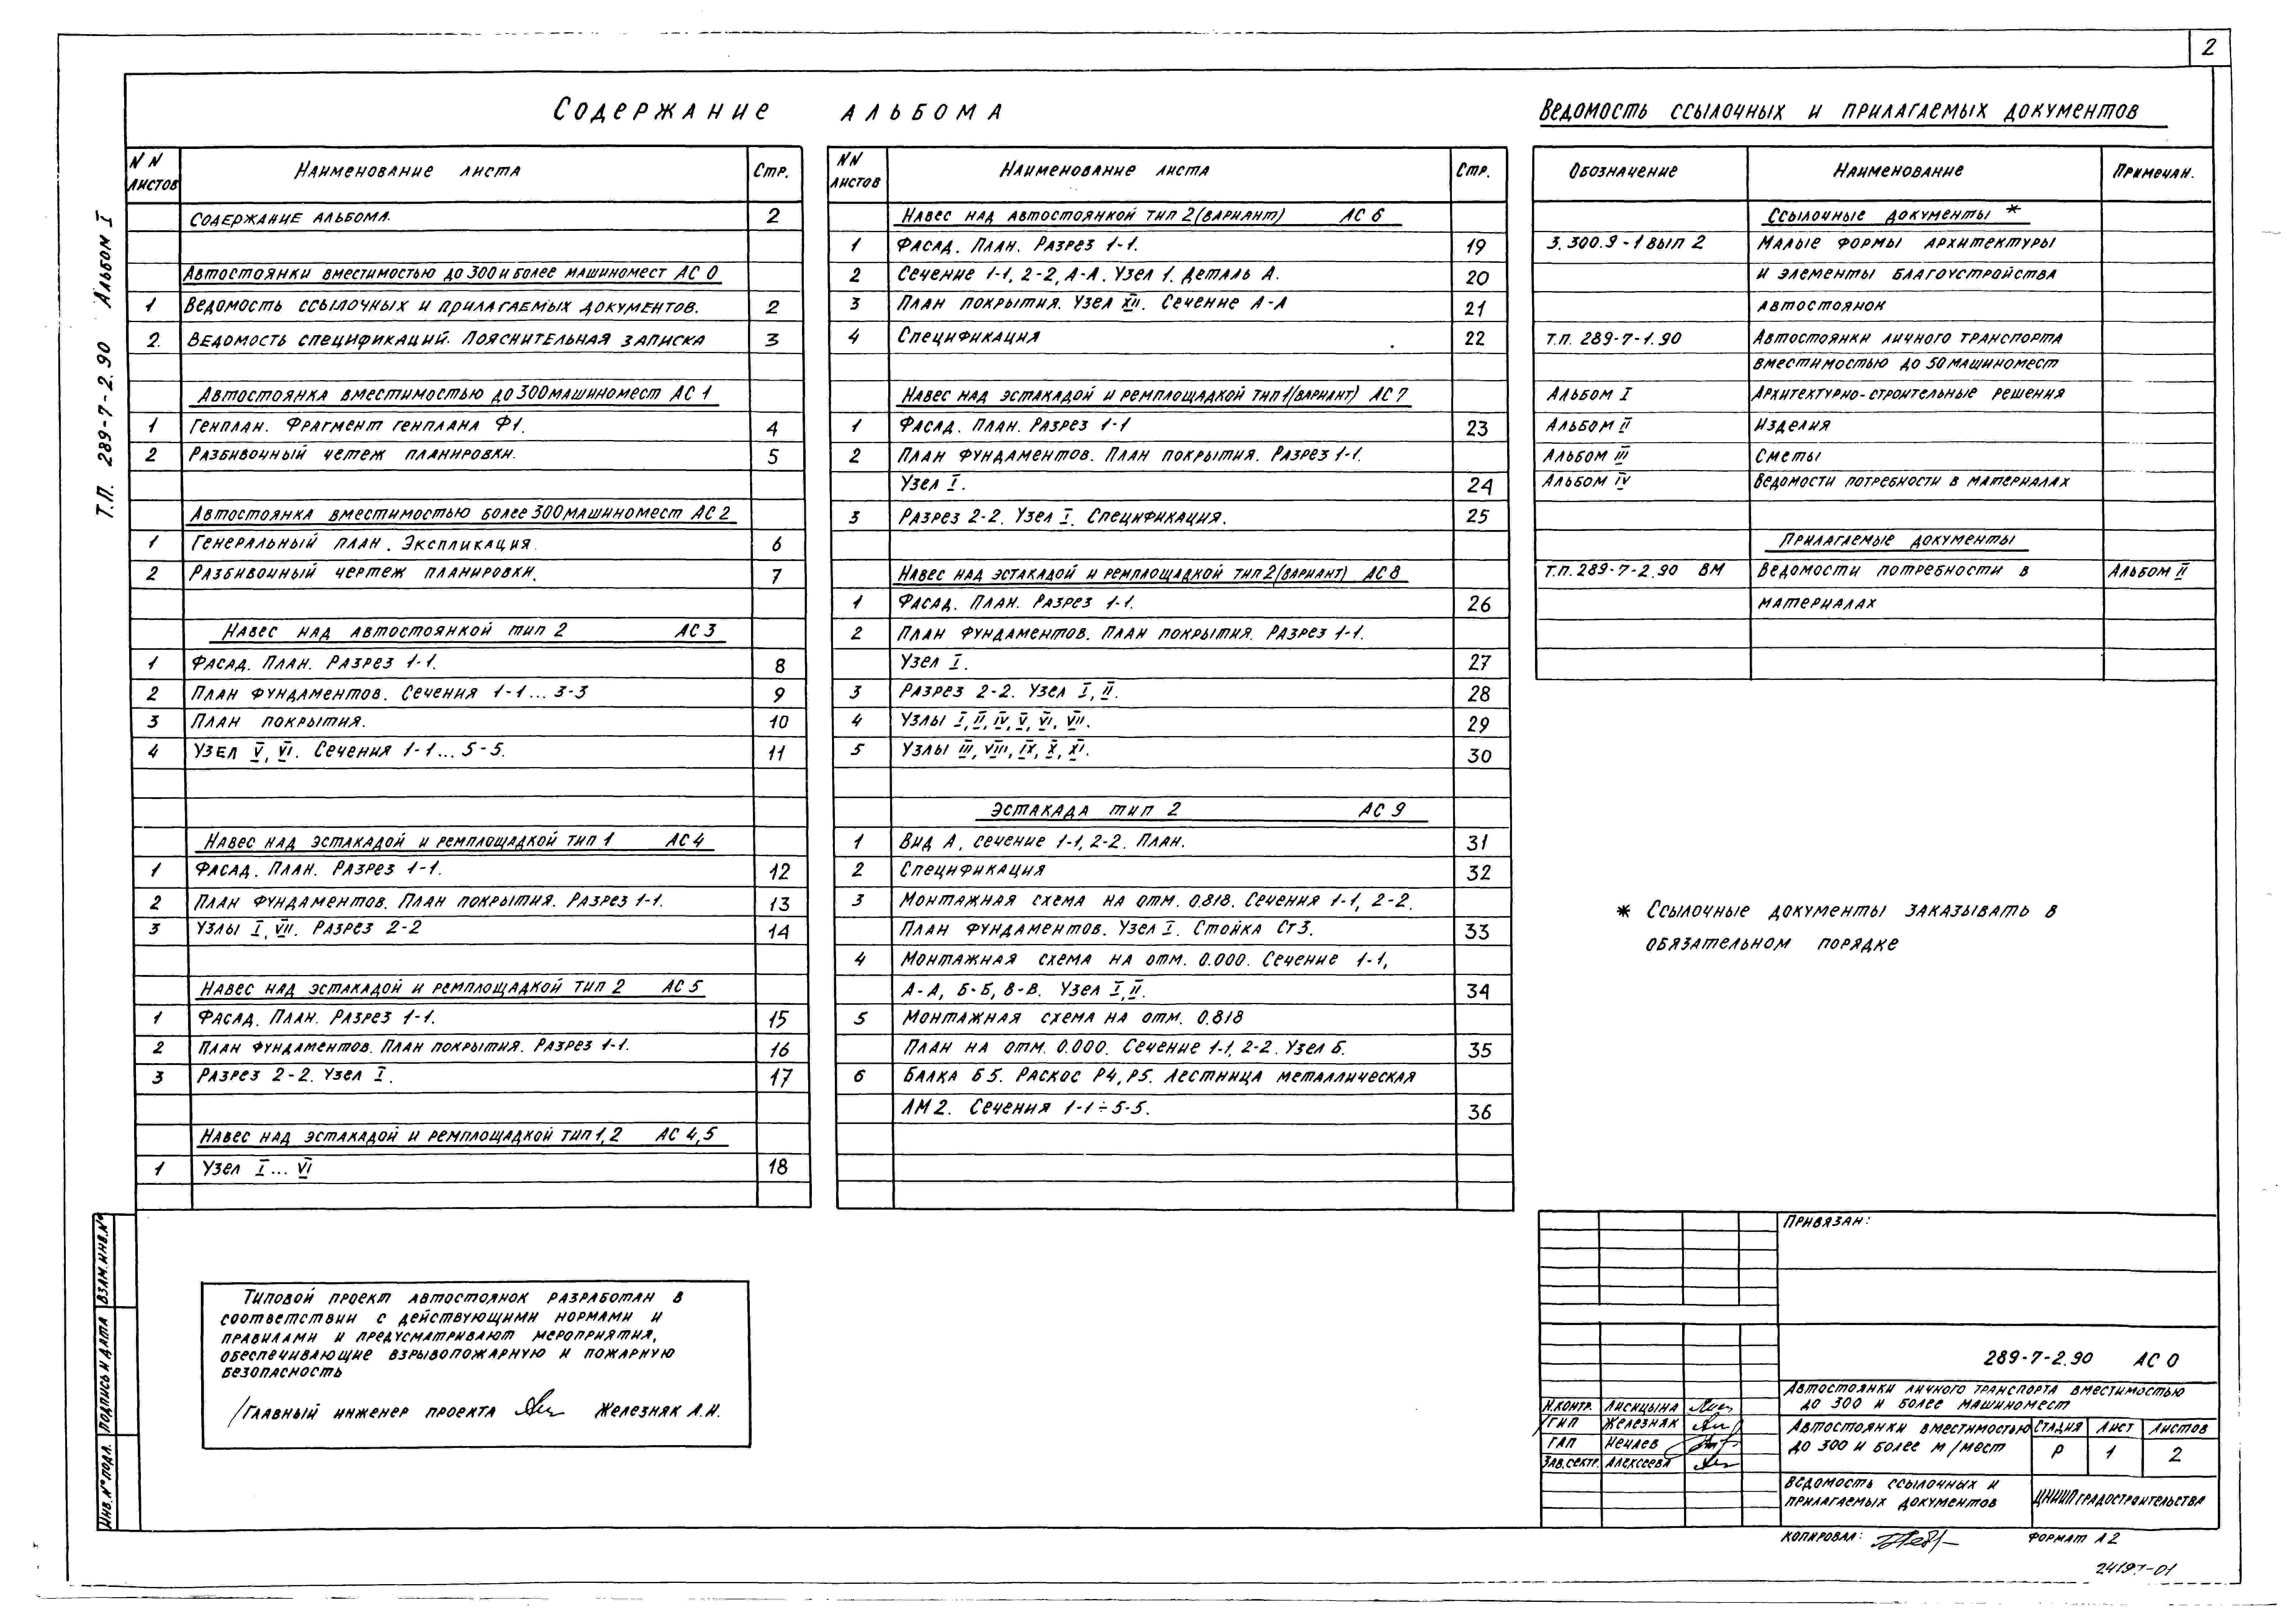 2
Содержание альбома
NN листов Наименование листа Стр.
Содержание альбома. 2
Автостоянки вместимостью до 300 и более машиномест АС 0
1 Ведомость ссылочных и прилагаемых документов. 2
2. Ведомость спецификаций. Пояснительная записка 3
Автостоянка вместимостью до 300 машиномест АС 1
1 Генплан. Фрагмент генплана Ф1. 4
2 Разбивочный четеж планировки. 5
Автостоянка вместимостью более 300 машиномест АС 2
1 Генеральный план. Экспликация. 6
2 Разбивочный чертеж планировки. 7
Навес над автостоянкой тип 2 АС 3
1 Фасад. План. Разрез 1-1. 8
2 План фундаментов. Сечения 1-1... 3-3 9
3 План покрытия. 10
4 Узел V, VI. Сечения 1-1... 5-5. 11
Навес над эстакадой и ремплощадкой тип 1 АС 4
1 Фасад. План. Разрез 1-1. 12
2 План фундаментов. План покрытия. Разрез 1-1. 13
3 Узлы I, VII. Разрез 2-2 14
Навес над эстакадой и ремплощадкой тип 2 АС 5
1 Фасад. План. Разрез 1-1. 15
2 План фундаментов. План покрытия. Разрез 1-1. 16
3 Разрез 2-2. Узел I. 17
Навес над эстакадой и ремплощадкой тип 1,2 АС 4,5
1 Узел I... VI 18
NN листов Наименование листа Стр.
Навес над автостоянкой тип 2 (вариант) АС 6
1 Фасад. План. Разрез 1-1. 19
2 Сечение 1-1, 2-2, А-А. Узел 1. Деталь А. 20
3 План покрытия. Узел XII. Сечение А-А 21
4 Спецификация 22
Навес над эстакадой и ремплощадкой тип 1 (вариант) АС 7
1 Фасад. План. Разрез 1-1 23
2 План фундаментов. План покрытия. Разрез 1-1.
Узел I. 24
3 Разрез 2-2. Узел I. Спецификация. 25
Навес над эстакадой и ремплощадкой тип 2 (вариант) АС 8
1 Фасад. План. Разрез 1-1. 26
2 План фундаментов. План покрытия. Разрез 1-1.
Узел I. 27
3 Разрез 2-2. Узел I, II. 28
4 Узлы I, II, IV, V, VI, VII. 29
5 Узлы III, VIII, IX, X, XI. 30
Эстакада тип 2 АС 9
1 Вид А, сечение 1-1, 2-2. План. 31
2 Спецификация 32
3 Монтажная схема на отм. 0.818. Сечения 1-1, 2-2.
План фундаментов. Узел I. Стойка Ст3. 33
4 Монтажная схема на отм. 0.000. Сечение 1-1,
А-А, Б-Б, В-В. Узел I, II. 34
5 Монтажная схема на отм. 0.818
План на отм. 0.000. Сечение 1-1, 2-2. Узел Б. 35
6 Балка Б5. Раскос Р4, Р5. Лестница металлическая
ЛМ 2. Сечения 1-1÷5-5. 36
Ведомость ссылочных и прилагаемых документов
Обозначение Наименование Примечан.
Ссылочные документы *
3.300.9-1 вып 2 Малые формы архитектуры
и элементы благоустройства
автостоянок
Т.п. 289-7-1.90 Автостоянки личного транспорта
вместимостью до 50 машиномест
Альбом I Архитектурно-строительные решения
Альбом II Изделия
Альбом III Сметы
Альбом IV Ведомости потребности в материалах
Прилагаемые документы
Т.п. 289-7-2.90 ВМ Ведомости потребности в Альбом II
материалах
* Ссылочные документы заказывать в
обязательном порядке
Т.П. 289-7-2.90 Альбом I
Инв. № подл. Подпись и дата Взам. инв. №
Типовой проект автостоянок разработан в
соответствии с действующими нормами и
правилами и предусматривают мероприятия,
обеспечивающие взрывопожарную и пожарную
безопасность
Главный инженер проекта Железняк А.И.
Привязан:
289-7-2.90 АС 0
Автостоянки личного транспорта вместимостью
до 300 и более машиномест
Н.контр. Лисицына
ГИП Железняк
ГАП Нечаев
Зав.сект. Алексеева
Автостоянки вместимостью
до 300 и более м/мест
Стадия Лист Листов
Р 1 2
Ведомость ссылочных и
прилагаемых документов
ЦНИИП градостроительства
Копировал: Формат А2